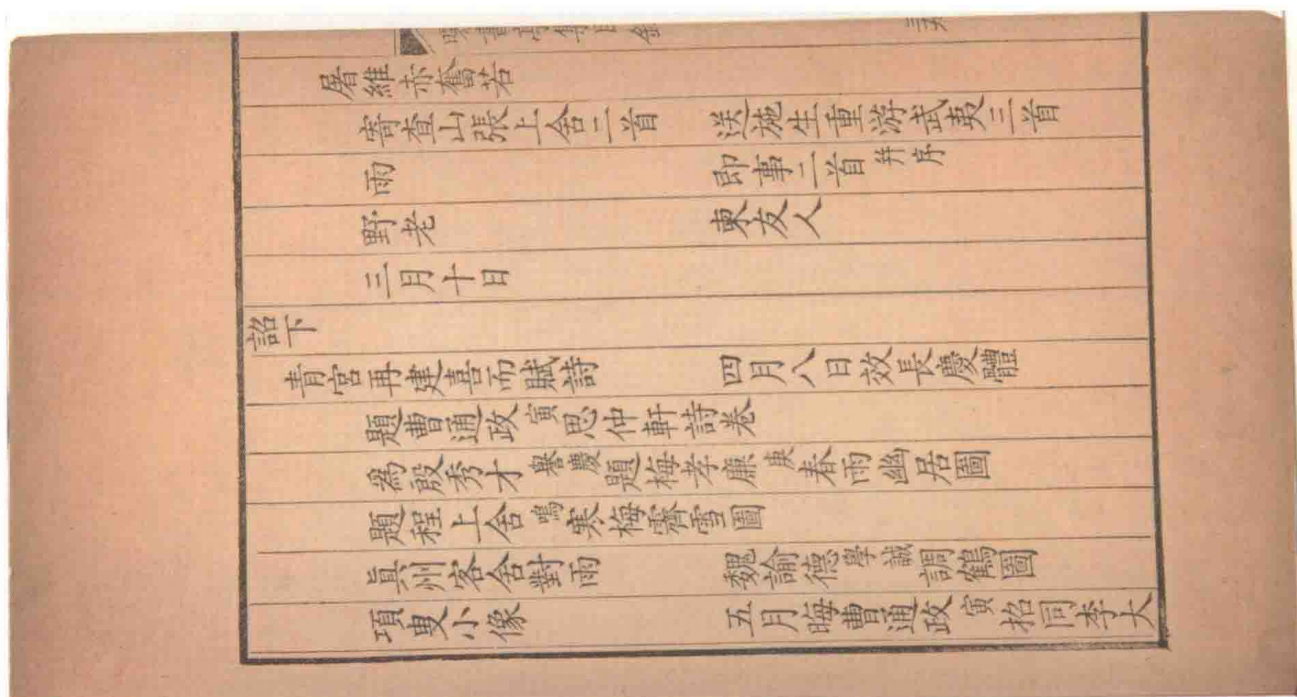 曝書亭集目錄
屠維赤奮若
寄查山張上舍二首　送施生重游武夷三首
雨　即事二首并序
野老　柬友人
三月十日
詔下
青宮再建喜而賦詩　四月八日效長慶體
題曹通政寅思仲軒詩卷
爲殷秀才譽慶題梅孝廉庚春雨幽居圖
題程上舍鳴寒梅霽雪圖
眞州客舍對雨　魏諭德學誠調鶴圖
項叟小像　五月晦曹通政寅招同李大